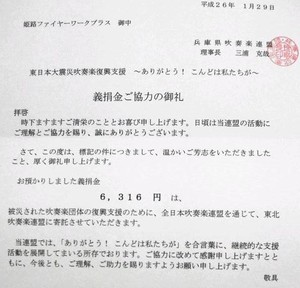 平成26年 1月29日
姫路ファイヤーワークプラス 御中
兵庫県吹奏楽連盟
理事長 三浦 克哉
東日本大震災吹奏楽復興支援 ～ありがとう！こんどは私たちが～
義捐金ご協力の御礼
拝啓
時下ますますご清栄のこととお喜び申し上げます。日頃は当連盟の活動に
ご理解とご協力を賜り、誠にありがとうございます。
さて、この度は、標記の件につきまして、温かいご芳志をいただきました
こと、厚く御礼申し上げます。
お預かりしました義捐金
6,316 円 は、
被災された吹奏楽団体の復興支援のために、全日本吹奏楽連盟を通じて、東北
吹奏楽連盟に寄託させていただきます。
当連盟では、「ありがとう！こんどは私たちが」を合言葉に、継続的な支援
活動を展開してまいる所存でおります。ご協力に改めて感謝申しますとと
もに、今後とも、ご理解、ご助力を賜りますようお願い申し上げます。
敬具